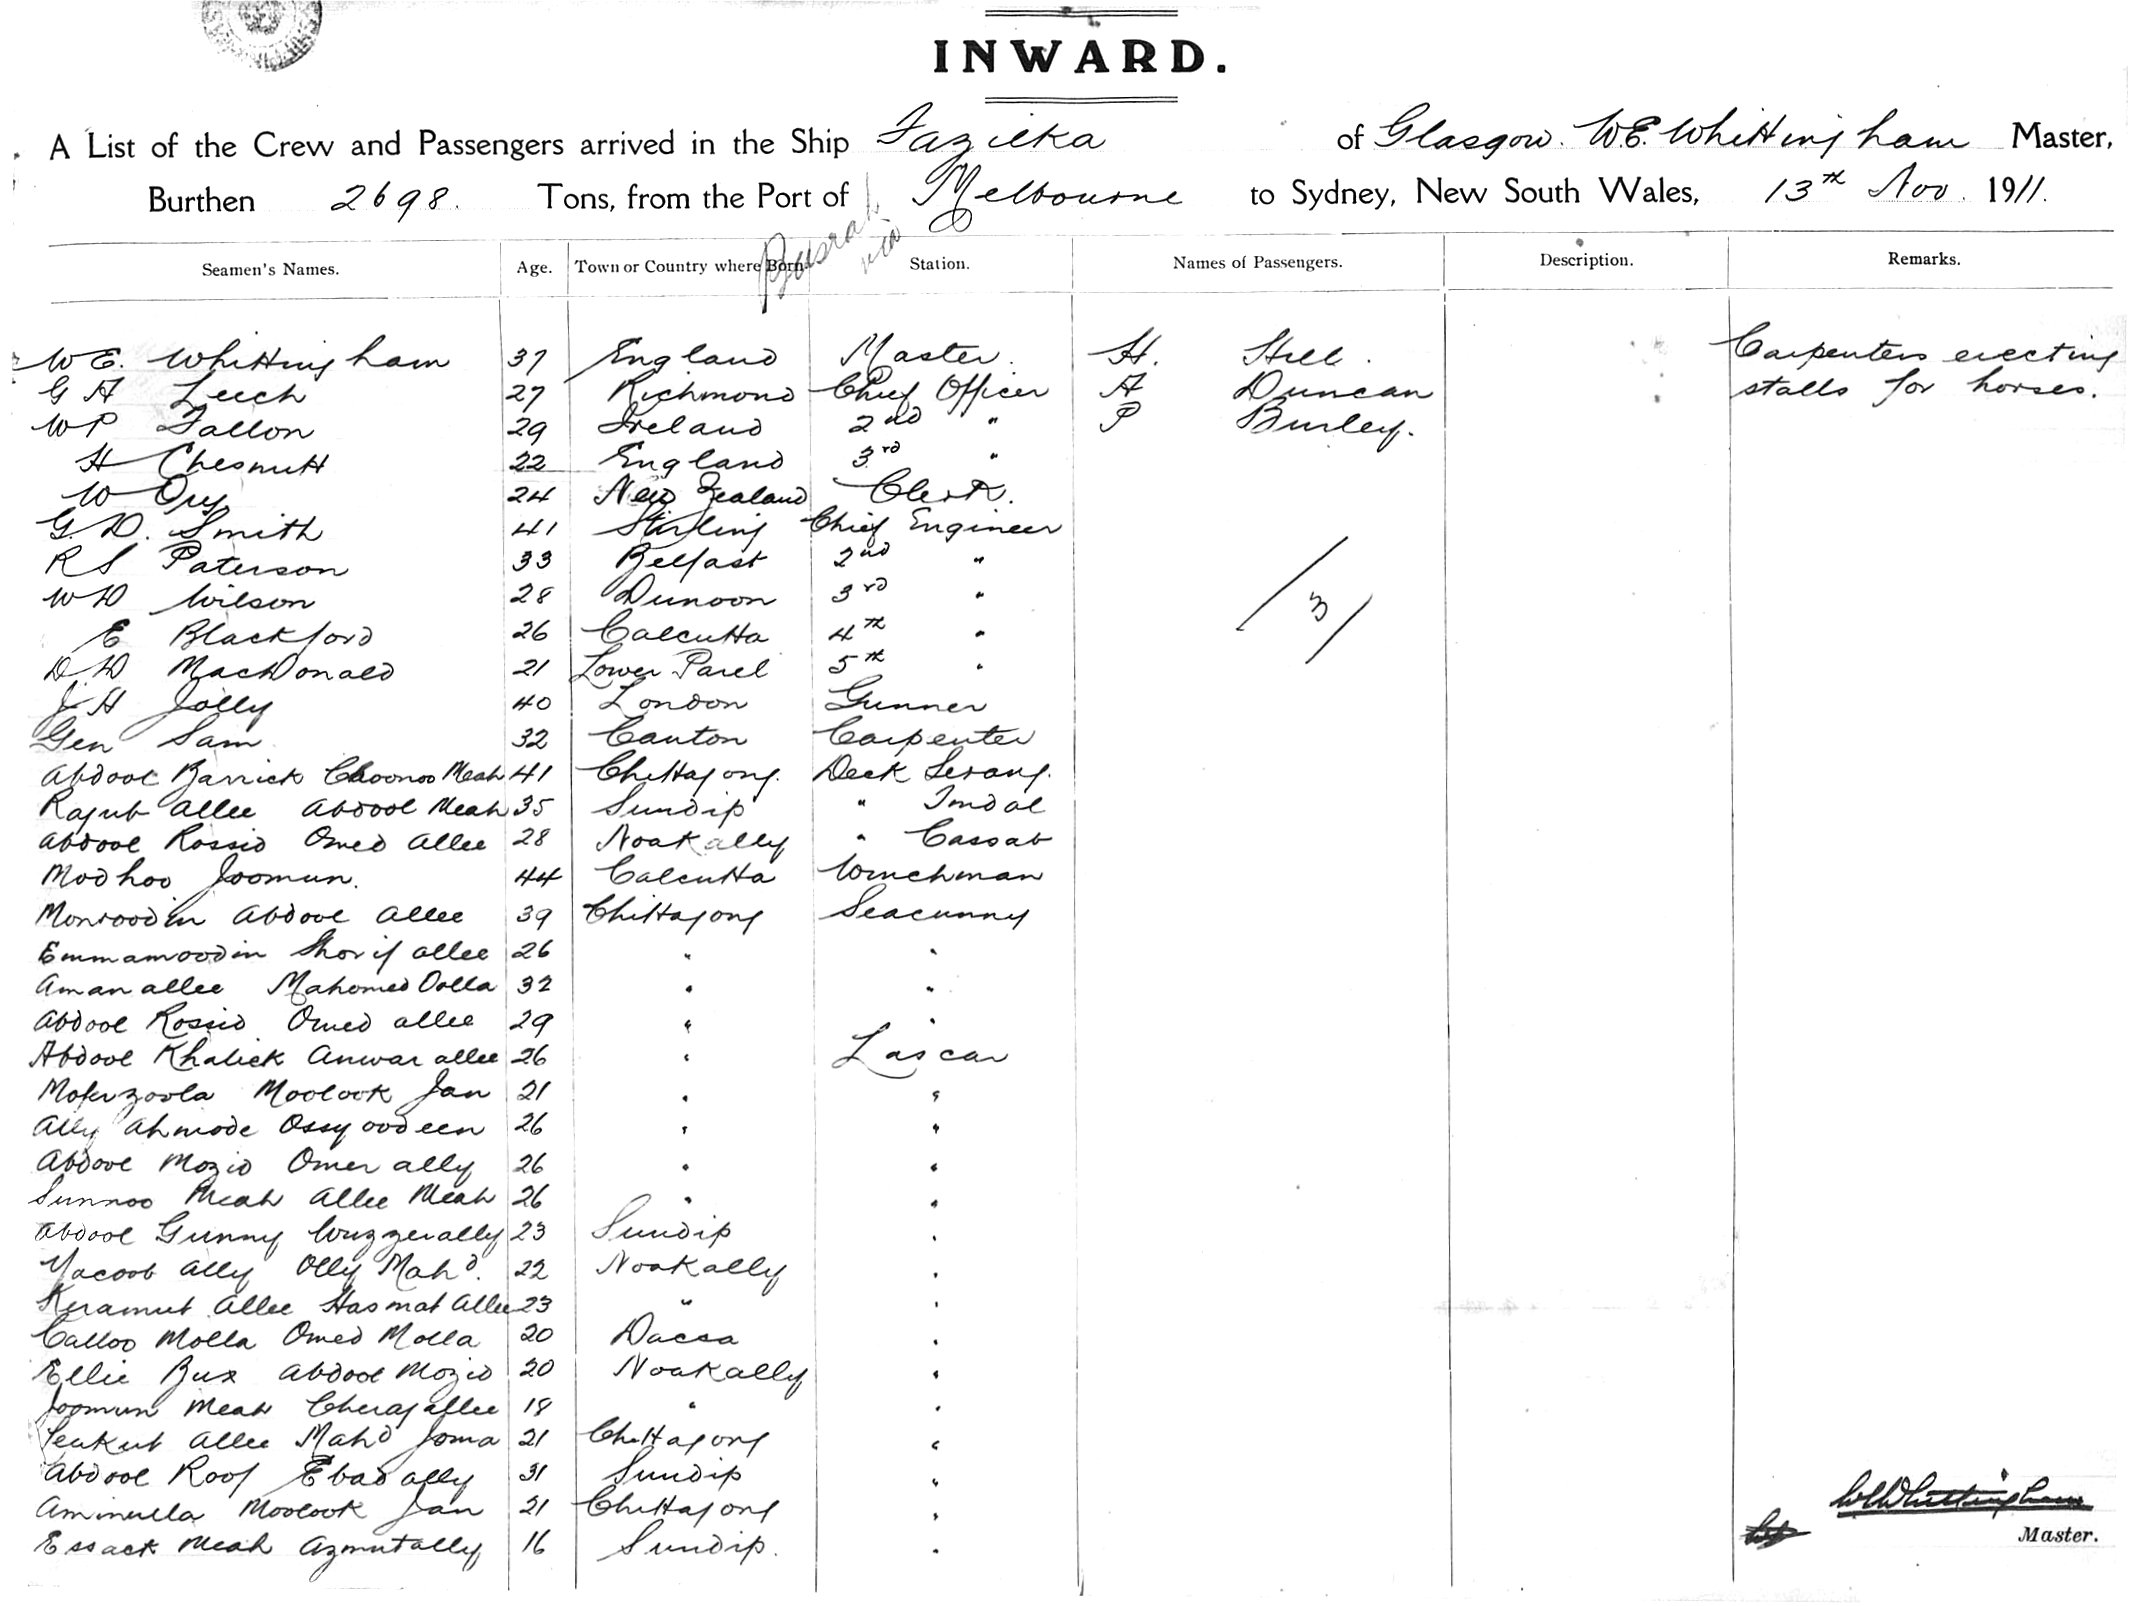 INWARD.
A List of the Crew and Passengers arrived in the Ship Fazilka of Glasgow. W.E. Whittingham Master,
Burthen 2698. Tons, from the Port of Busrah via Melbourne to Sydney, New South Wales, 13th Nov. 1911.
Seamen's Names. Age. Town or Country where Born. Station. Names of Passengers. Description. Remarks.
W E. Whittingham 37 England Master. H. Hill. Carpenters erecting
G A Leech 27 Richmond Chief Officer A Duncan stalls for horses.
W P Fallon 29 Ireland 2nd " P Burley.
H Chesnutt 22 England 3rd "
W Ory 24 New Zealand Clerk.
G. D. Smith 41 Stirling Chief Engineer
R S Paterson 33 Belfast 2nd "
W D Wilson 28 Dunoon 3rd "
/ 3 /
E Blackford 26 Calcutta 4th "
D D MacDonald 21 Lower Parel 5th "
J H Jolly 40 London Gunner
Gen Sam 32 Canton Carpenter
Abdool Barrick Choonoo Meah 41 Chittagong. Deck Serang.
Rajub Allee Abdool Meah 35 Sundip " Tindal
Abdool Rossid Omed Allee 28 Noakally " Cassab
Modhoo Joomun. 44 Calcutta Winchman
Monroodin Abdool Allee 39 Chittagong Seacunny
Emmamoodin Shorif allee 26 " "
Aman allee Mahomed Dolla 32 " "
Abdool Rossid Omed allee 29 " "
Abdool Khalick Anwar allee 26 " Lascar
Mofuzoola Moolook Jan 21 " "
Ally Ahmode Ossyoodeen 26 " "
Abdool Mozid Omer ally 26 " "
Sunnoo Meah Allee Meah 26 " "
Abdool Gunny Wuzzerally 23 Sundip "
Yacoob Ally Olly Mahd. 22 Noakally "
Keramut Allee Hasmat Allee 23 " "
Calloo Molla Omed Molla 20 Dacca "
Ellie Bux Abdool Mozid 20 Noakally "
Joomun Meah Cherag allee 18 " "
Allee Mahd Joma 21 Chittagong "
Abdool Roof Ebad ally 31 Sundip "
Aminulla Moolook Jan 21 Chittagong "
Essack Meah Azmutally 16 Sundip. "
W E Whittingham
Master.